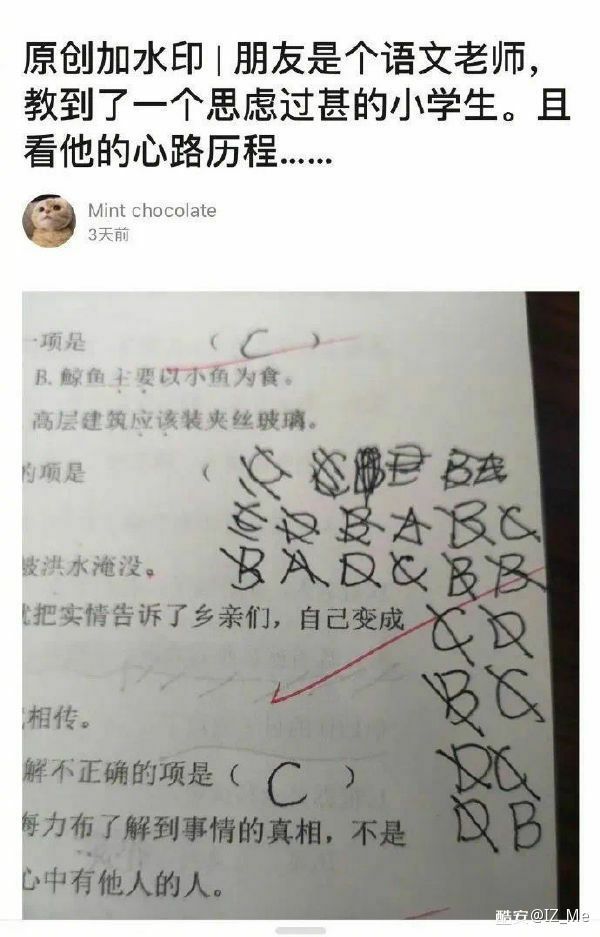 原创加水印 | 朋友是个语文老师,
教到了一个思虑过甚的小学生。且
看他的心路历程......
Mint chocolate
3天前
一项是 ( C )
B. 鲸鱼主要以小鱼为食。
高层建筑应该装夹丝玻璃。
的项是 ( C B B A
C D B A B C
被洪水淹没。 B A D C B B
就把实情告诉了乡亲们，自己变成 C D
B C
相传。
解不正确的项是 ( C ) D C
海力布了解到事情的真相，不是 D B
心中有他人的人。
酷安@IZ_Me